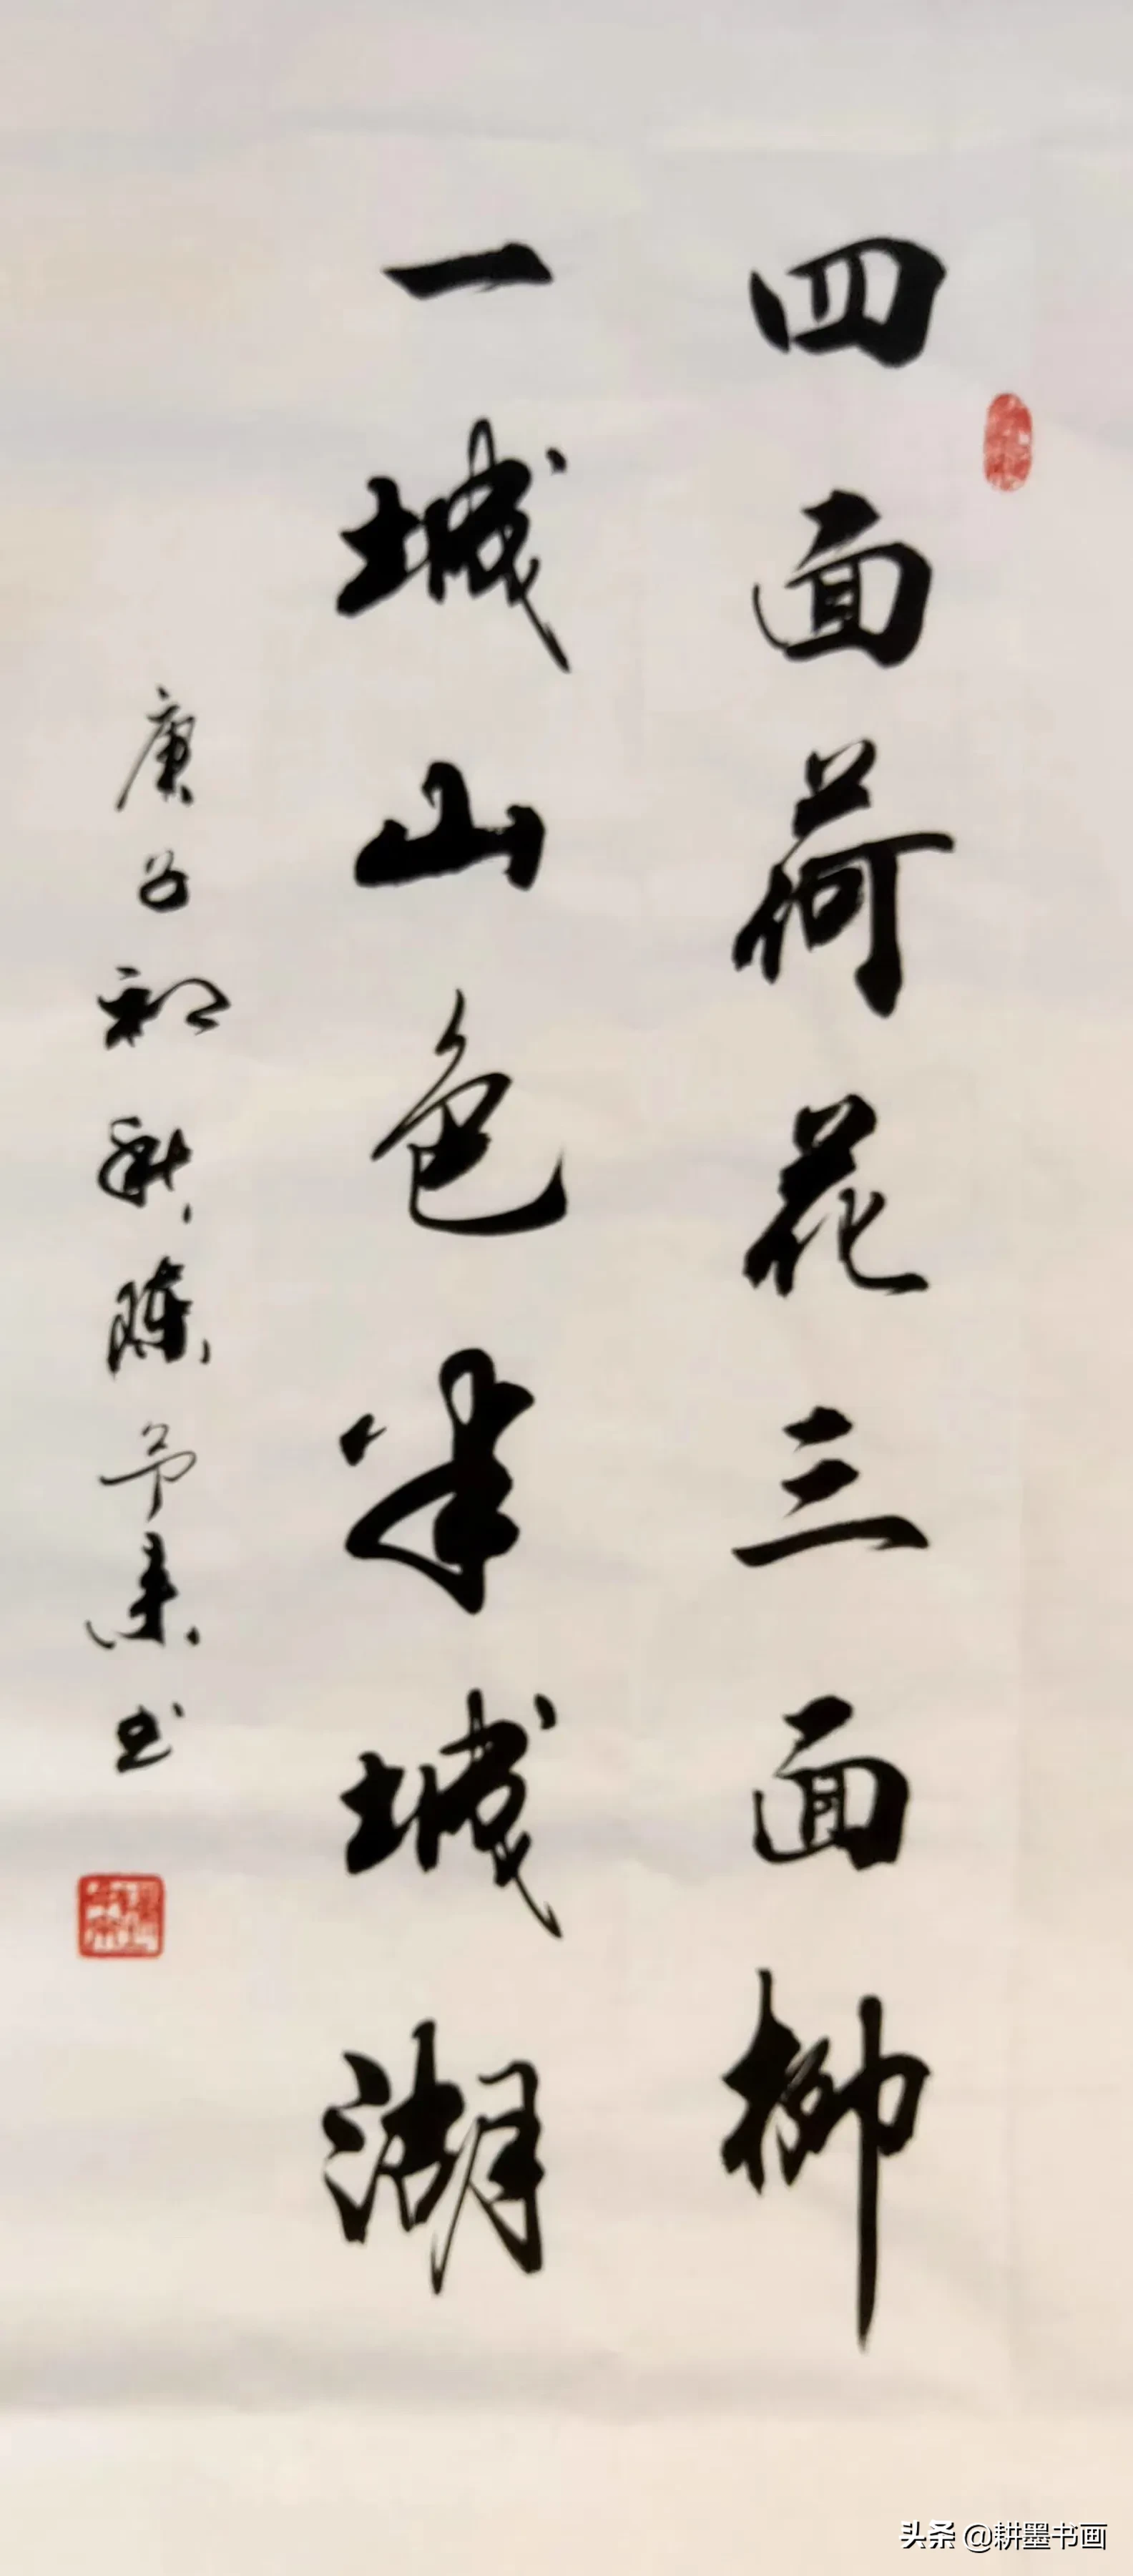 四面荷花三面柳
一城山色半城湖
庚子初秋陈予东书
头条 @耕墨书画